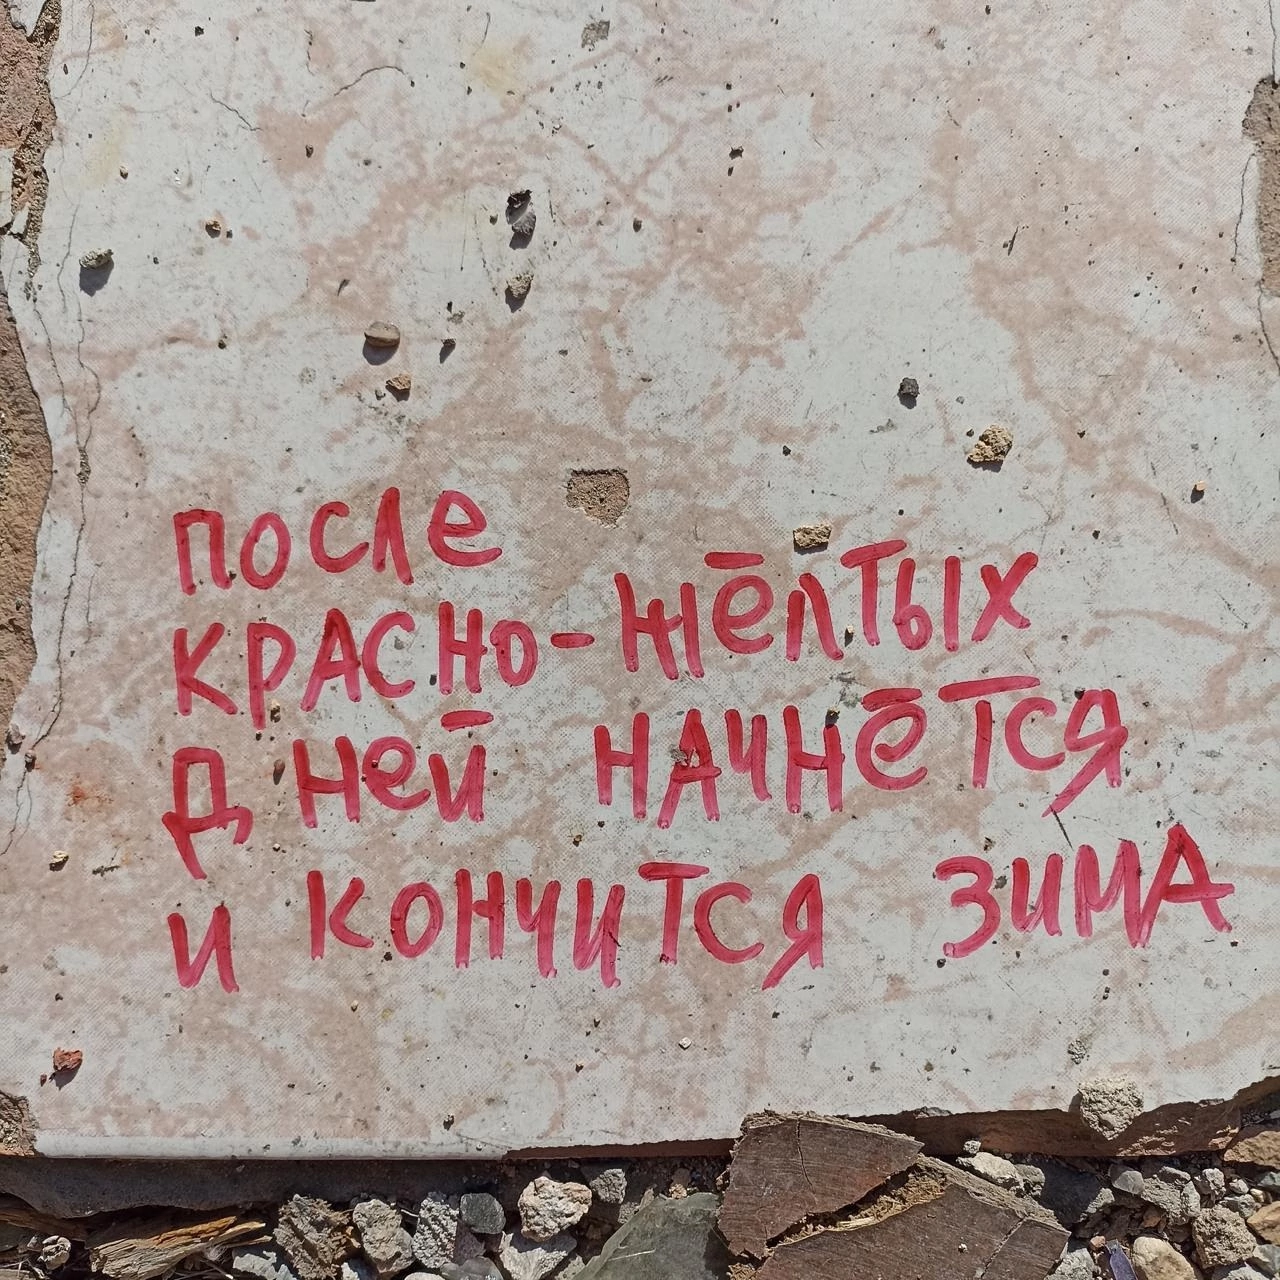 после
красно-жёлтых
дней начнётся
и кончится зима